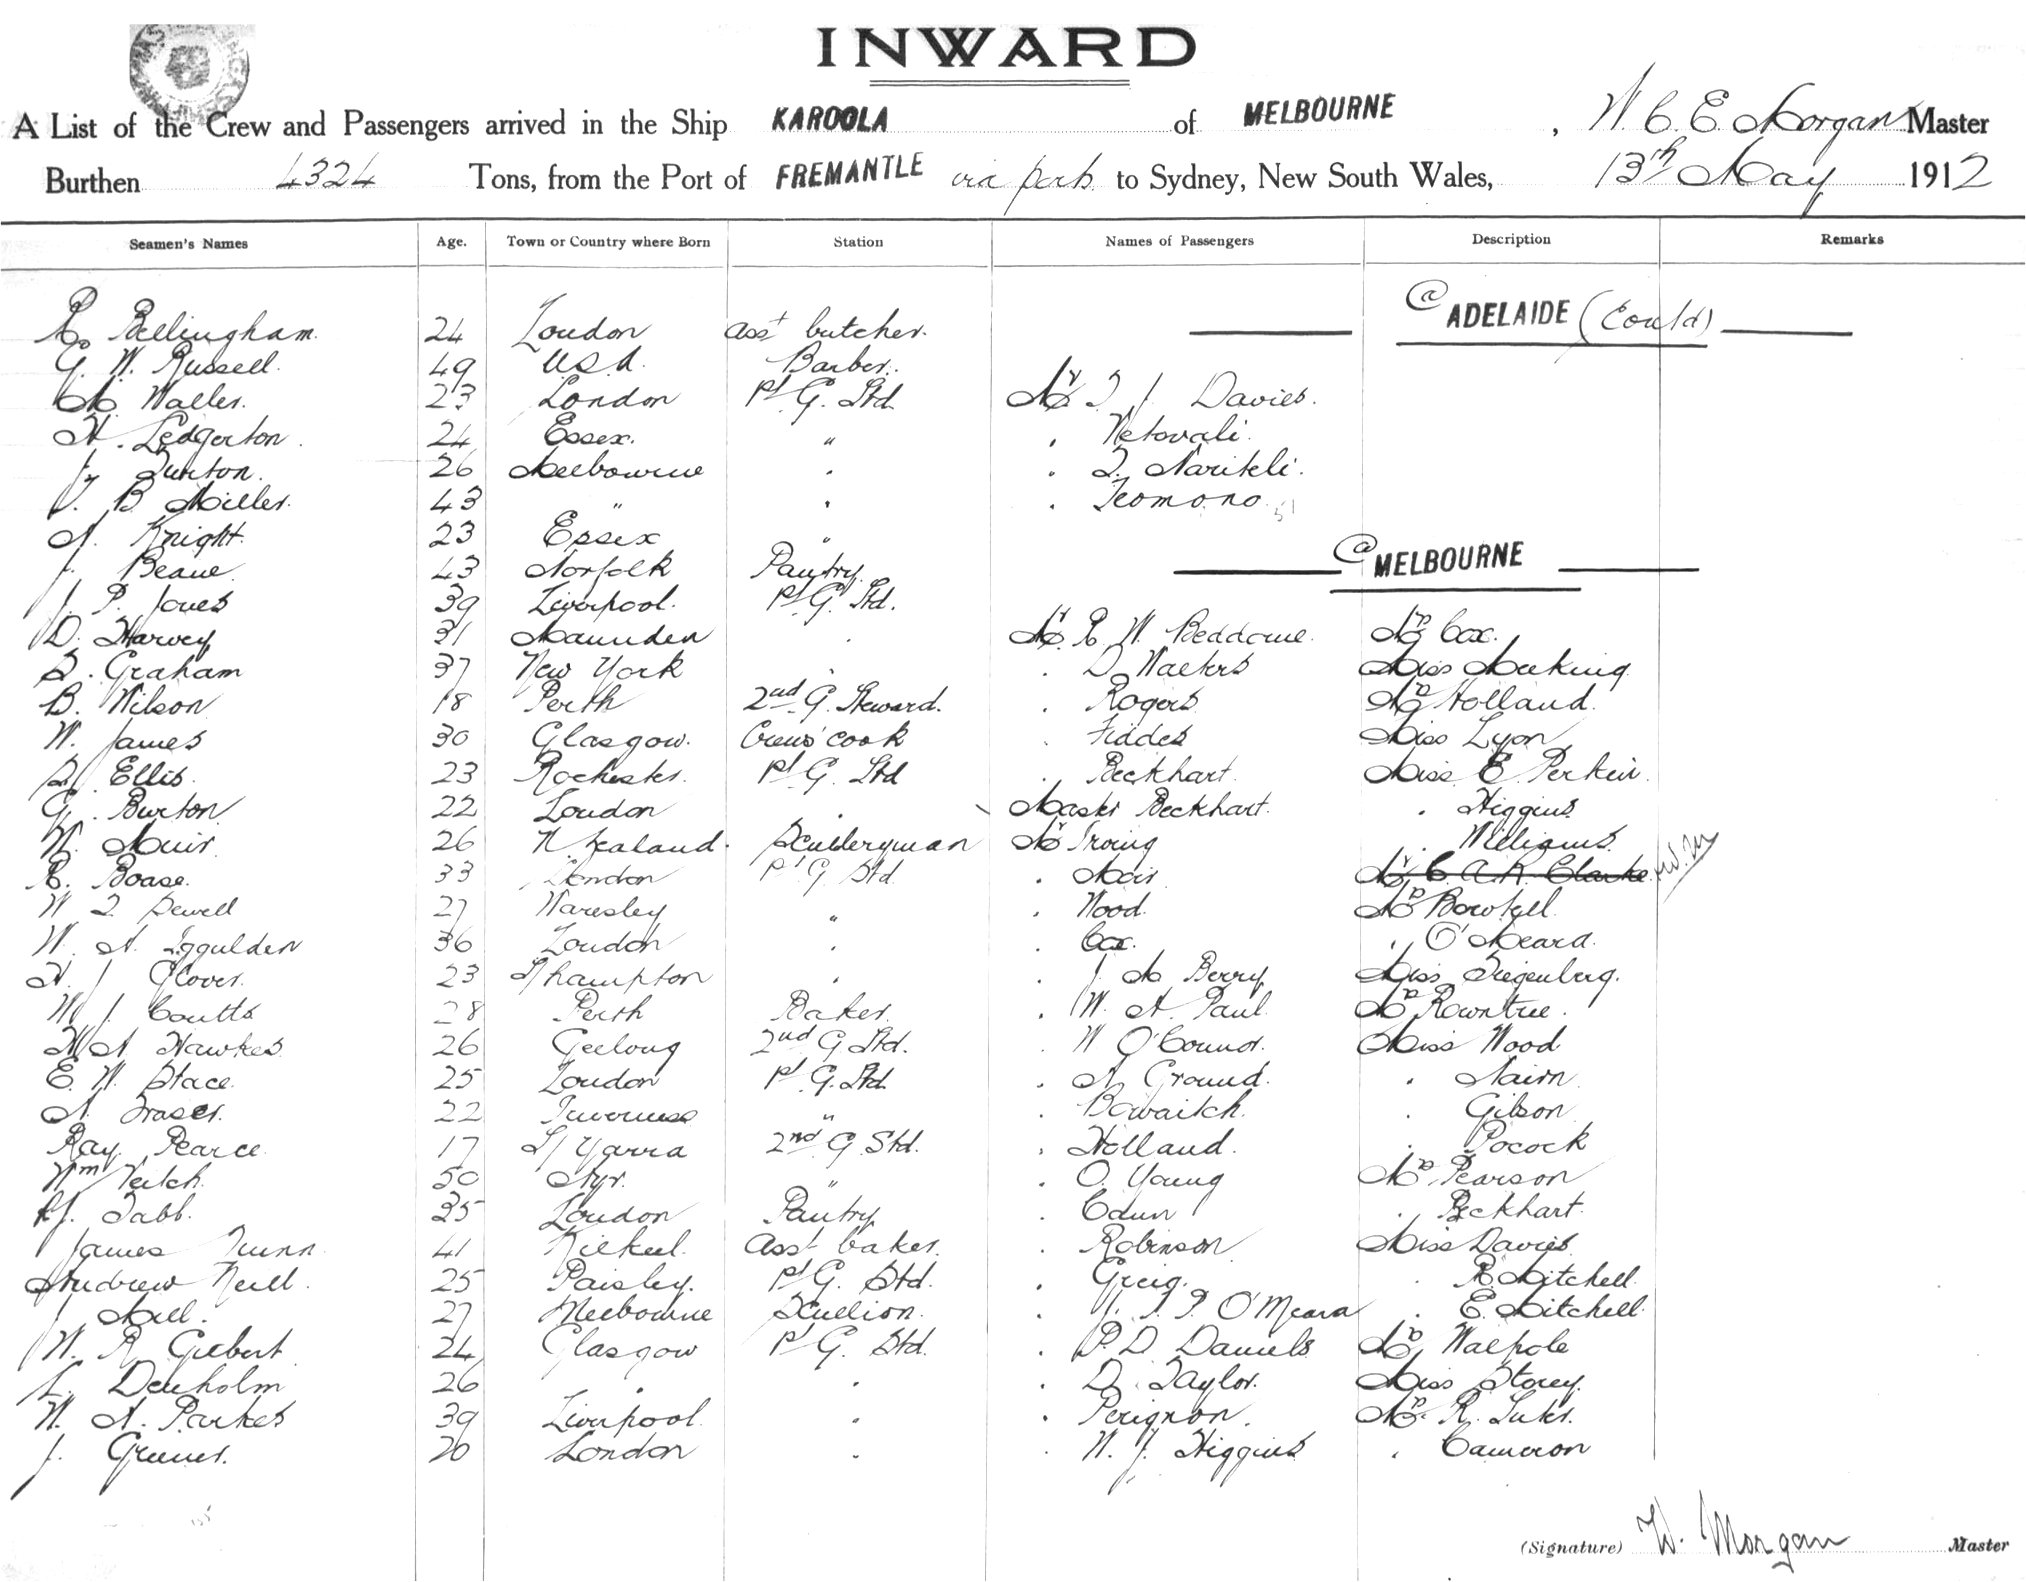 INWARD
A List of the Crew and Passengers arrived in the Ship KAROOLA of MELBOURNE, W C E Morgan Master
Burthen 4324 Tons, from the Port of FREMANTLE via ports to Sydney, New South Wales, 13th May 1912
Seamen's Names Age. Town or Country where Born Station Names of Passengers Description Remarks
@ ADELAIDE (Contd)
Bellingham 24 London asst butcher.
G. W. Russell 49 U S A. Barber. 
M. Waller. 23 London Ps G. Std Mr T J Davies.
H. Ledgerton 24 Essex. " . Netovali.
J. Turton. 26 Melbourne . . T. Narikli.
J. B Miller. 43 " . . Teomono
A. Knight 23 Essex "
@ MELBOURNE
J. Beane 43 Norfolk Pantry.
J. P. Jones 39 Liverpool. Ps G. Std.
D. Harvey 31 . Mr R. W. Beddome. Mrs Cox.
D. Graham 37 New York . . D. Walters Miss Meeking
B. Wilson 18 Perth 2nd G. Steward. . Rogers Mrs Holland.
W. James 30 Glasgow. Crews' cook . Fiddes Miss Lyon
Ellis. 23 Rochester. Ps G. Std . Beckhart. Miss E Perkin.
G. Burton 22 London . Master Beckhart. . Higgins
W. Muir 26 N Zealand. Sculleryman Mr Irving . Williams.
R. Boase. 33 London Ps G Std . Moir Mr C. A. R. Clarke
W T Sewell 27 Waresley " . Wood. Mrs Bowtell.
W. A. Iggulden 36 London . . Cox. . O'Meara.
H. J Glover. 23 S/hampton . . J. M Berry Miss Ziegenberg.
W J Coutts 28 Perth Baker. . W. A. Paul Mrs Rowntree.
H A Hawkes. 26 Geelong 2nd G Std. . W O'Connor. Miss Wood
E. W. Stace. 25 London Ps G. Std . A Ground. . Nairn
A. Fraser. 22 Inverness " . Gibson
Ray Pearce 17 S/ Yarra 2nd G Std. . Holland. . Pocock
Wm Veitch. 50 Ayr. " . O. Young Mrs Pearson
Tabb. 35 London Pantry . . Beckhart.
James Quinn. 41 asst baker. . Robinson Miss Davies
Andrew Neill. 25 Paisley. Ps G. Std. . Greig. . R. Mitchell
J Mill. 27 Melbourne Scullion. . O'Meara . E. Mitchell
W. R Gilbert 24 Glasgow Ps G. Std. . P. D Daniels Mrs Walpole
L. Denholm 26 . . . D. Taylor. Miss Storey.
W. A. Parkes 39 Liverpool. " . Perignon. Mrs R.
J. Greener. 20 London " . W. J. Higgins . Cameron
(Signature) W. Morgan Master